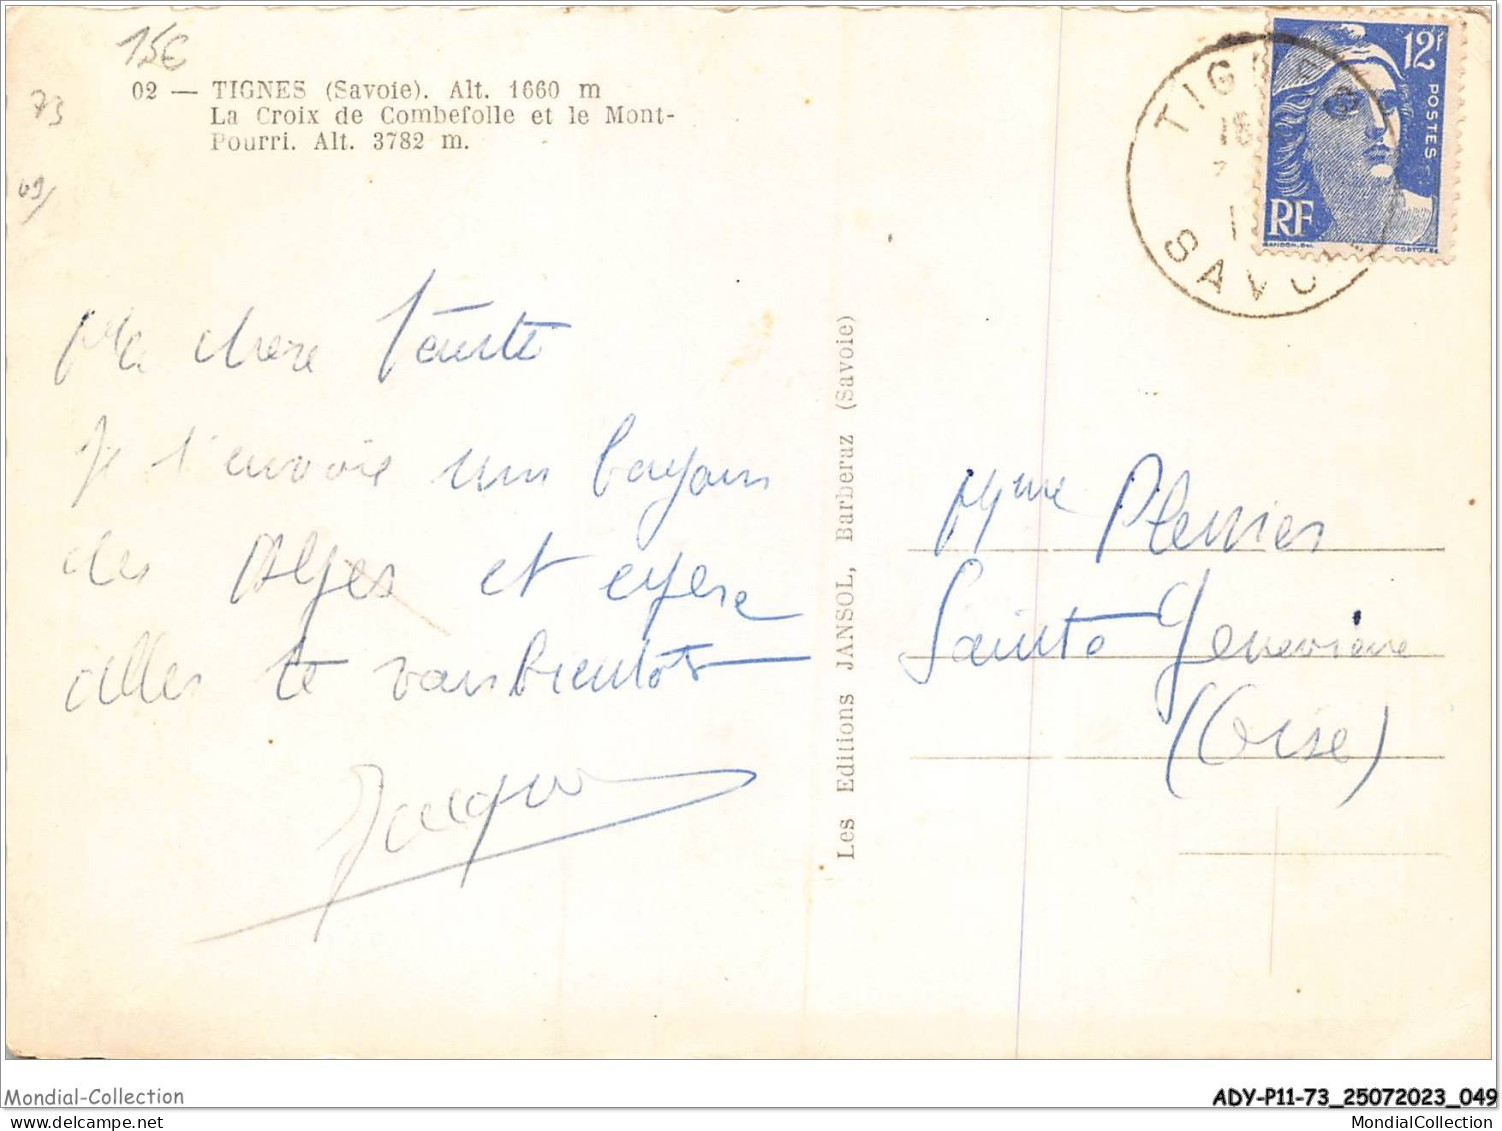 15€
02 — TIGNES (Savoie). Alt. 1660 m
La Croix de Combefolle et le Mont-
Pourri. Alt. 3782 m.
73
12f
POSTES
RF
TIGNES
SAVOIE
Ma chere
Je t'envoie un
des Alpes et espere
aller te voir bientôt
Jacques
Les Editions JANSOL, Barberaz (Savoie)
Mme Plessier
Sainte Geneviève
(Oise)
Mondial-Collection
.com
ADY-P11-73_25072023_049
MondialCollection